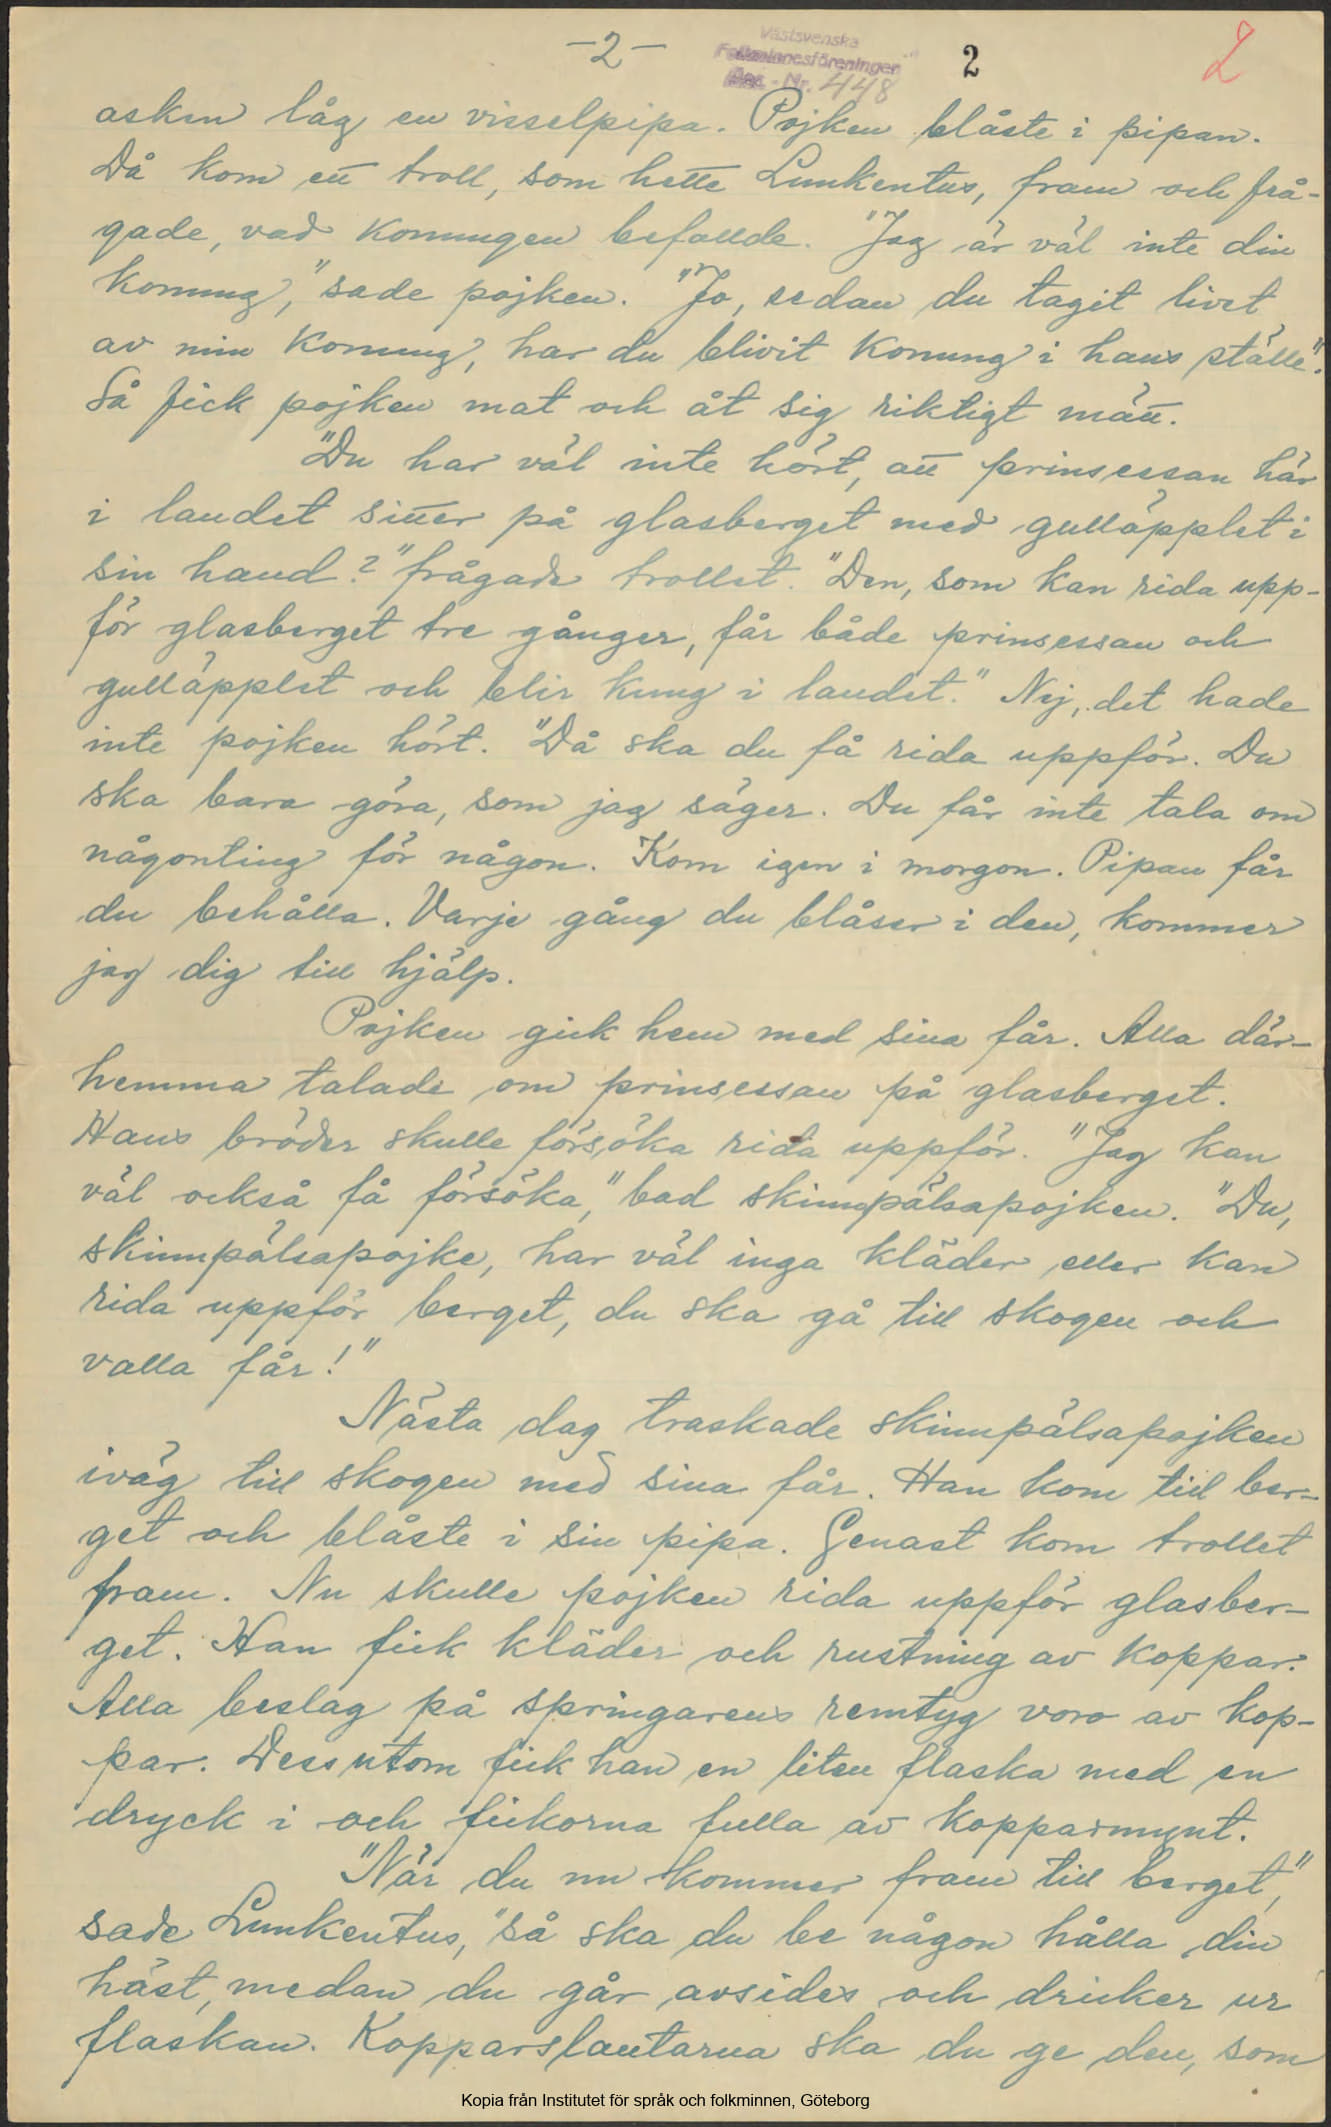 -2-
Västsvenska
Folkminnesföreningen
Acc. - Nr. 448
2
2
asken låg en visselpipa. Pojken blåste i pipan.
Då kom ett troll, som hette Lunkentus, fram och frå-
gade, vad konungen befallde. "Jag är väl inte din
konung," sade pojken. "Jo, sedan du tagit livet
av min konung, har du blivit konung i hans ställe".
Så fick pojken mat och åt sig riktigt mätt.
"Du har väl inte hört, att prinsessan här
i landet sitter på glasberget med gulläpplet i
sin hand?" frågade trollet. "Den, som kan rida upp-
för glasberget tre gånger, får både prinsessan och
gulläpplet och blir kung i landet." Nej, det hade
inte pojken hört. "Då ska du få rida uppför. Du
ska bara göra, som jag säger. Du får inte tala om
någonting för någon. Kom igen i morgon. Pipan får
du behålla. Varje gång du blåser i den, kommer
jag dig till hjälp.
Pojken gick hem med sina får. Alla där-
hemma talade om prinsessan på glasberget.
Hans bröder skulle försöka rida uppför. "Jag kan
väl också få försöka," bad skinnpälsapojken. "Du,
skinnpälsapojke, har väl inga kläder eller kan
rida uppför berget, du ska gå till skogen och
valla får!"
Nästa dag traskade skinnpälsapojken
iväg till skogen med sina får. Han kom till ber-
get och blåste i sin pipa. Genast kom trollet
fram. Nu skulle pojken rida uppför glasber-
get. Han fick kläder och rustning av koppar.
Alla beslag på springarens remtyg voro av kop-
par. Dessutom fick han en liten flaska med en
dryck i och fickorna fulla av kopparmynt.
"När du nu kommer fram till berget,"
sade Lunkentus, "så ska du be någon hålla din
häst, medan du går avsides och dricker ur
flaskan. Kopparslantarna ska du ge den, som
Kopia från Institutet för språk och folkminnen, Göteborg